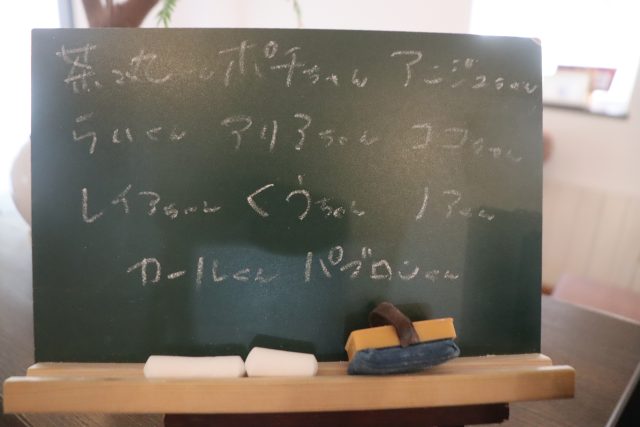 茶々丸くん ポチちゃん アンジュちゃん
らいくん アリアちゃん ココちゃん
レイアちゃん くうちゃん ノアくん
カールくん パブロンくん